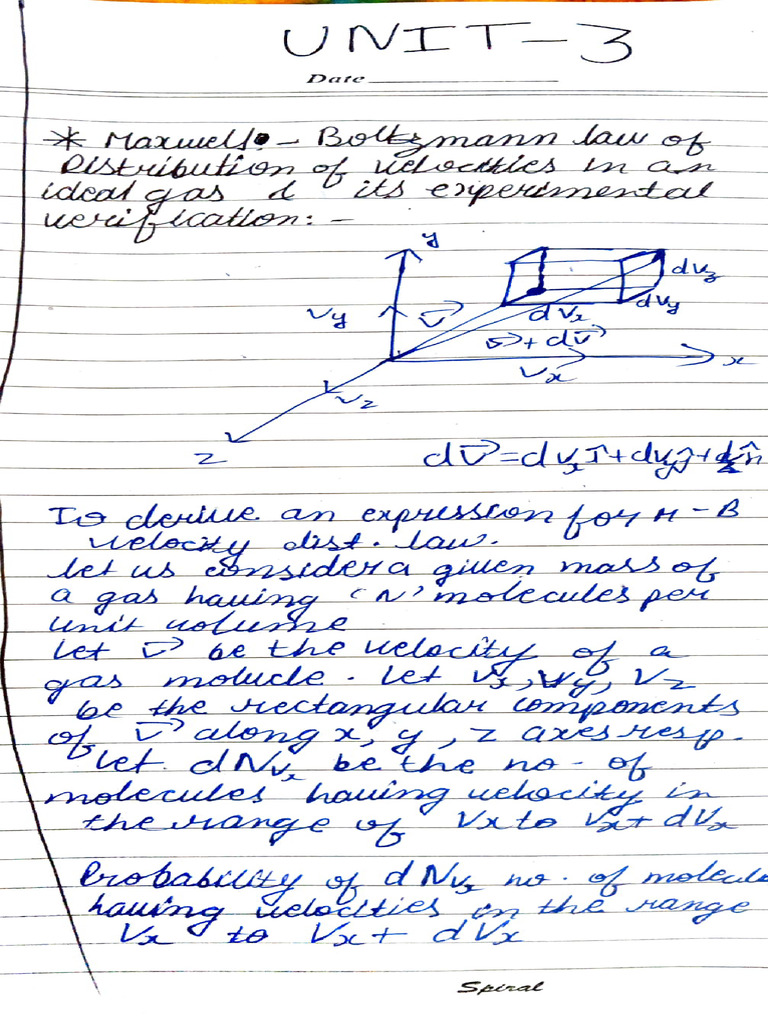 UNIT-3
Date
* Maxwell - Boltzmann law of
Distribution of velocities in an
ideal gas & its experimental
verification: -
y
dvz
dvy
vy
v⃗
dvx
v⃗ + dv⃗
x
vx
vz
z
dv⃗ = dvx î + dvy ĵ + dvz n̂
To derive an expression for M-B
velocity dist. law.
let us consider a given mass of
a gas having 'N' molecules per
unit volume
Let v⃗ be the velocity of a
gas molucle. Let vx, vy, vz
be the rectangular components
of v⃗ along x, y, z axes resp.
Let dNvx be the no. of
molecules having velocity in
the range of Vx to Vx + dVx
Probability of dNvx no. of molecule
having velocities in the range
Vx to Vx + dVx
Spiral